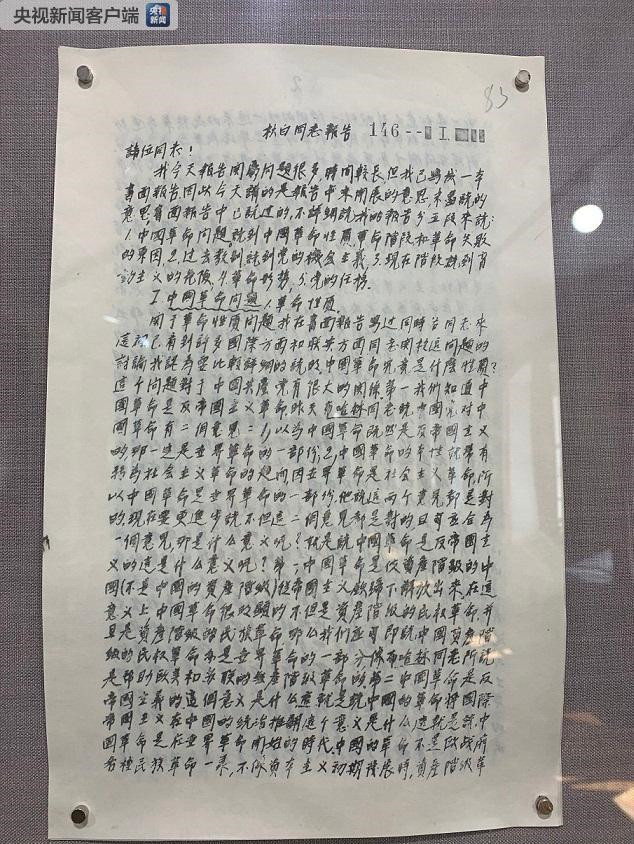 央视新闻客户端
央视新闻
83
秋白同志報告 146--
諸位同志！
我今天報告関扵问题很多時间較長但我已寫成一本
書面報告,因此今天講的是報告中未闭展的意思,未盡說的
意思,書面報告中已說过的,不詳細說.我的報告分五段來說:
1.中國革命问題,說到中國革命性质革命階段和革命失敗
的東因.2.过去教訓說到党的機会主義.3.現在階段,說到盲
动主义的危險.4.革命形势.5.党的任務.
I.中国革命问題.1.革命性质.
関于革命性质问題,我在書面報告寫过,同時台同志來
討論我認為要比較詳細的說的,中國革命究竟是什麼性质?
这个问題對于中国共產党有很大的関係.第一我们知道中
國革命是反帝國主义革命.昨天布哈林同志說中国党对中
國革命有二個意見:1,以為中國革命既然是反帝國主义
的,那一定是世界革命的一部份;2,中國革命的本性就帶有
轉為社会主义革命的趋向,因世界革命是社会主义革命,所
以中國革命是世界革命的一部份.他說这两个意見都是對
的.現在要更進步說不但这二個意見都是對的且可互合為
一個意見,那是什么意义呢?就是說中國革命是反帝國主
义的.這是什么意义呢?第一,中國革命是使資產階級的中
國(不是中國的資產階級)從帝國主义鉄蹄下解放出來,在这
意义上中國革命很明顯的不但是資產階級的民权革命,并
且是資產階級的民族革命.那么我们應可即說中国資產階
級的民权革命亦是世界革命的一部分,像布哈林同志所說
是帮助欧美和苏联的無產階級革命的.第二中國革命是反
帝國主義的這個意义是什么這就是說中國的革命将國際
帝國主义在中國的統治推翻.這个意义是什么這就是說中
國革命是在世界革命開始的時代.中國的革命不是欧战前
各種民族革命一樣,不像資本主义初期發展時,資產階級革